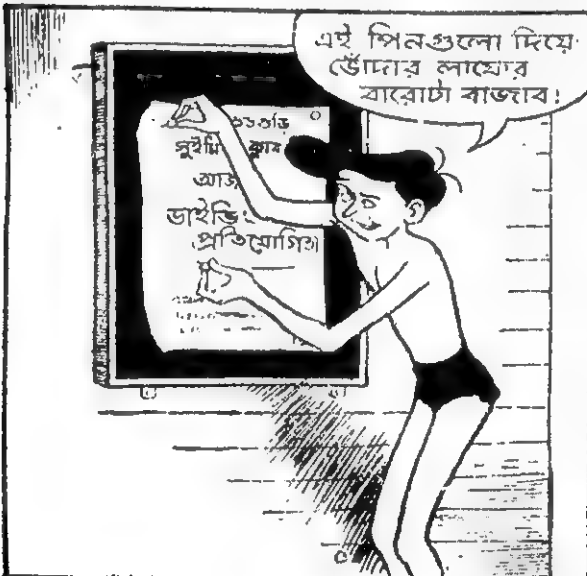 এই পিনগুলো দিয়ে
ভোঁদার লাফের
বারোটা বাজাব!
সুইমিং ক্লাব
আজ
ডাইভিং
প্রতিযোগিতা